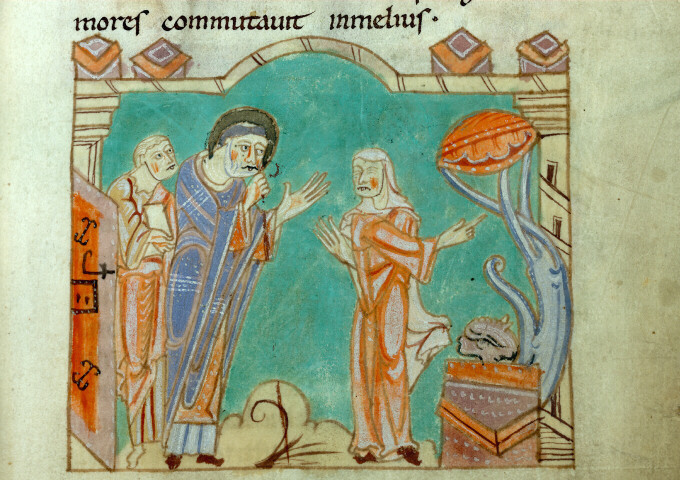 mores commutauit inmelius.